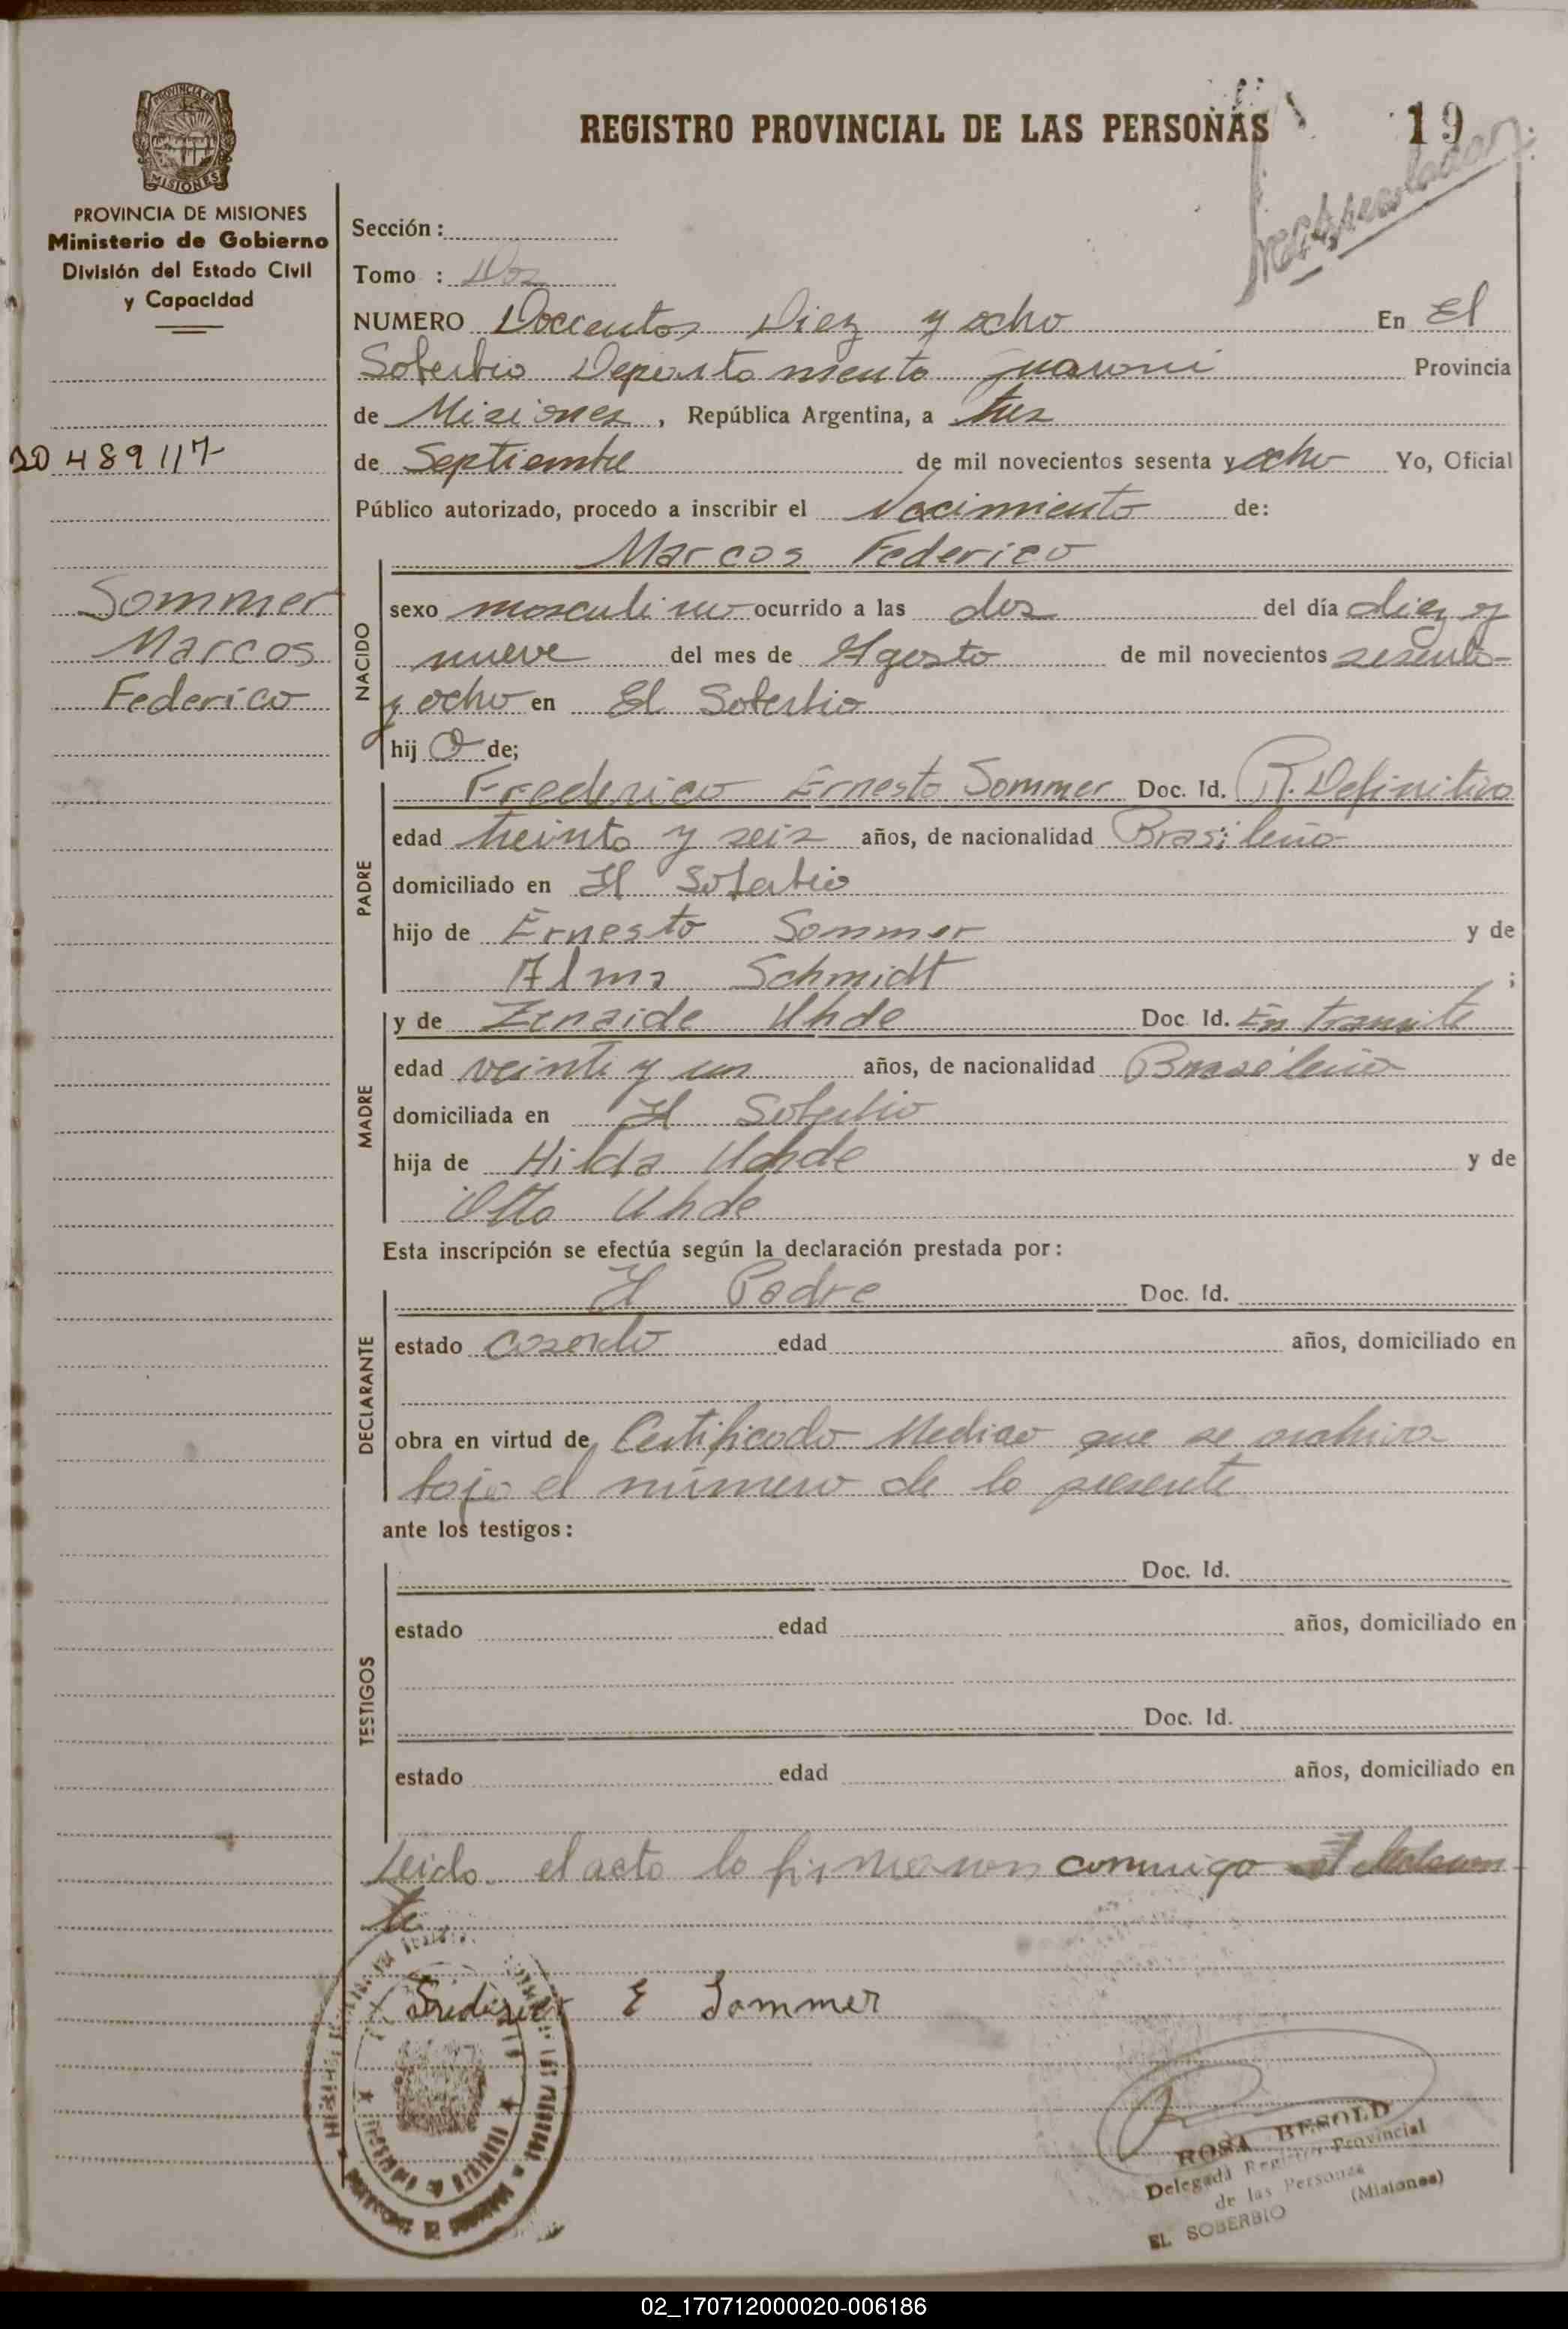 REGISTRO PROVINCIAL DE LAS PERSONAS
19
PROVINCIA DE MISIONES
Ministerio de Gobierno
División del Estado Civil
y Capacidad
20489117
Sommer
Marcos
Federico
Sección :
Tomo : Dos
NUMERO Docientos Diez y ocho En El
Soberbio Departamento Guarani Provincia
de Misiones , República Argentina, a tres
de Septiembre de mil novecientos sesenta y ocho Yo, Oficial
Público autorizado, procedo a inscribir el Nacimiento de:
Marcos Federico
NACIDO
sexo masculino ocurrido a las dos del día diez y
nueve del mes de Agosto de mil novecientos sesenta
y ocho en El Soberbio
hij o de;
PADRE
Frederico Ernesto Sommer Doc. Id. R. Definitivo
edad treinta y seis años, de nacionalidad Brasileño
domiciliado en El Soberbio
hijo de Ernesto Sommer y de
Alma Schmidt ;
MADRE
y de Zenaide Uhde Doc. Id. En tramite
edad veinte y un años, de nacionalidad Brasileña
domiciliada en El Soberbio
hija de Hilda Uhde y de
Otto Uhde
Esta inscripción se efectúa según la declaración prestada por:
DECLARANTE
El Padre Doc. Id.
estado casado edad años, domiciliado en
obra en virtud de Certificado Medico que se archiva
bajo el número de la presente
ante los testigos:
TESTIGOS
Doc. Id.
estado edad años, domiciliado en
Doc. Id.
estado edad años, domiciliado en
Leido el acto lo firmaron conmigo el declaran-
te
Frederico E Sommer
ROSA BESOLD
Delegada Registro Provincial
de las Personas
EL SOBERBIO (Misiones)
02_170712000020-006186